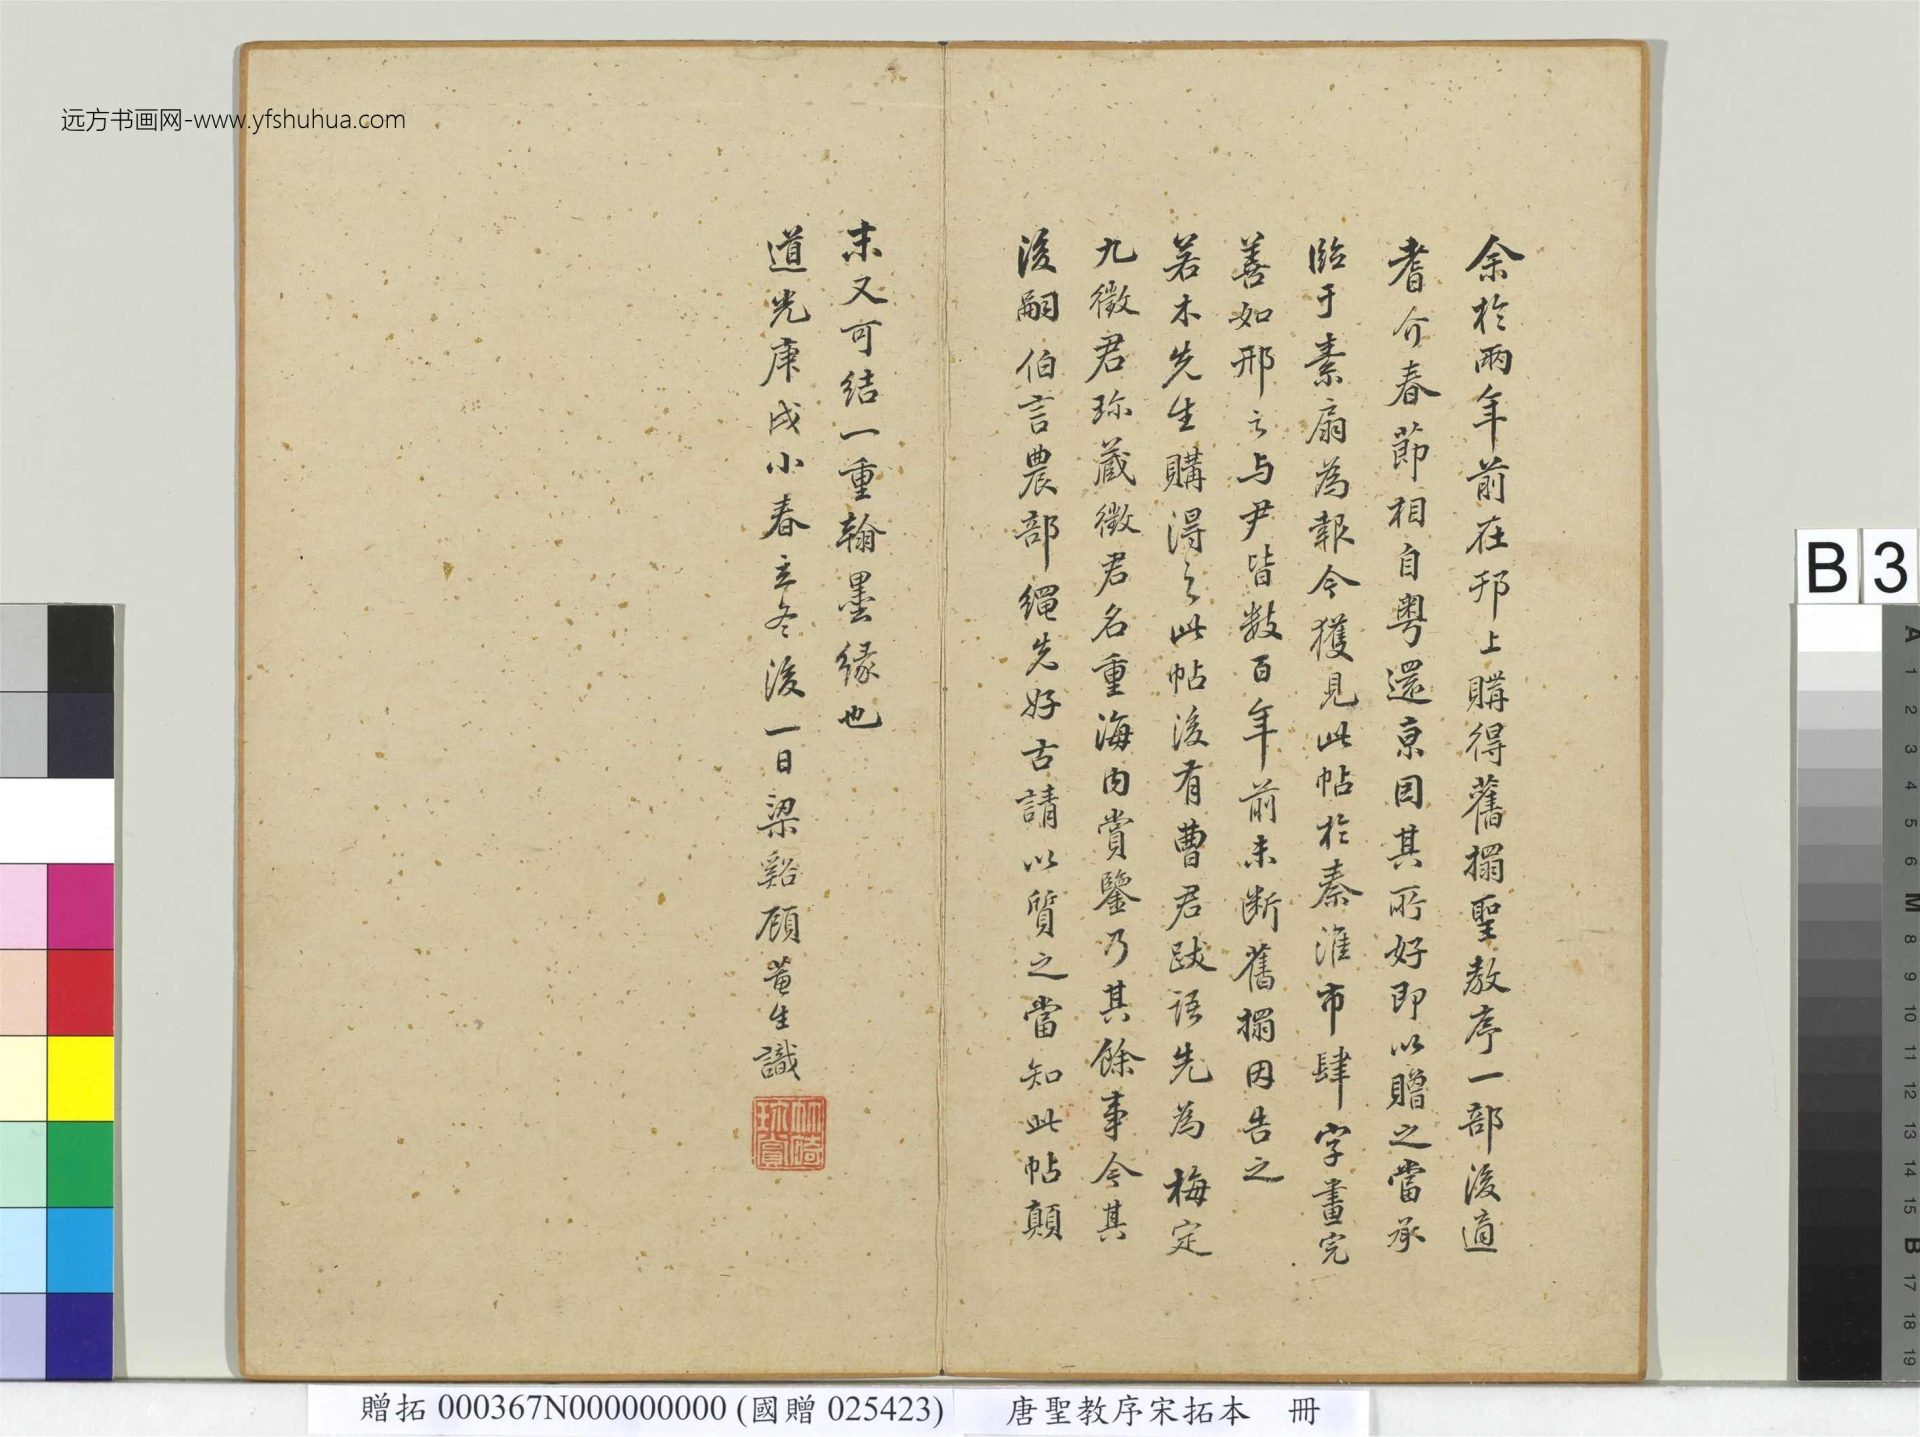 远方书画网-www.yfshuhua.com
余於兩年前在邗上購得舊搨聖教序一部後適
耆介春節相自粤還京因其所好即以贈之當承
臨于素扇為報今獲見此帖於秦淮市肆字畫完
善如邢之与尹皆数百年前未断舊搨因告之
若木先生購得之此帖後有曹君跋語先為梅定
九徵君珎蔵徵君名重海内賞鑒乃其餘事今其
後嗣伯言農部繩先好古請以質之當知此帖顛
末又可結一重翰墨緣也
道光庚戌小春立冬後一日梁谿顧生識
贈拓 000367N000000000 (國贈 025423)
唐聖教序宋拓本 冊
B 3
A
1
2
3
4
5
6
M
8
9
10
11
12
13
14
15
B
17
18
19